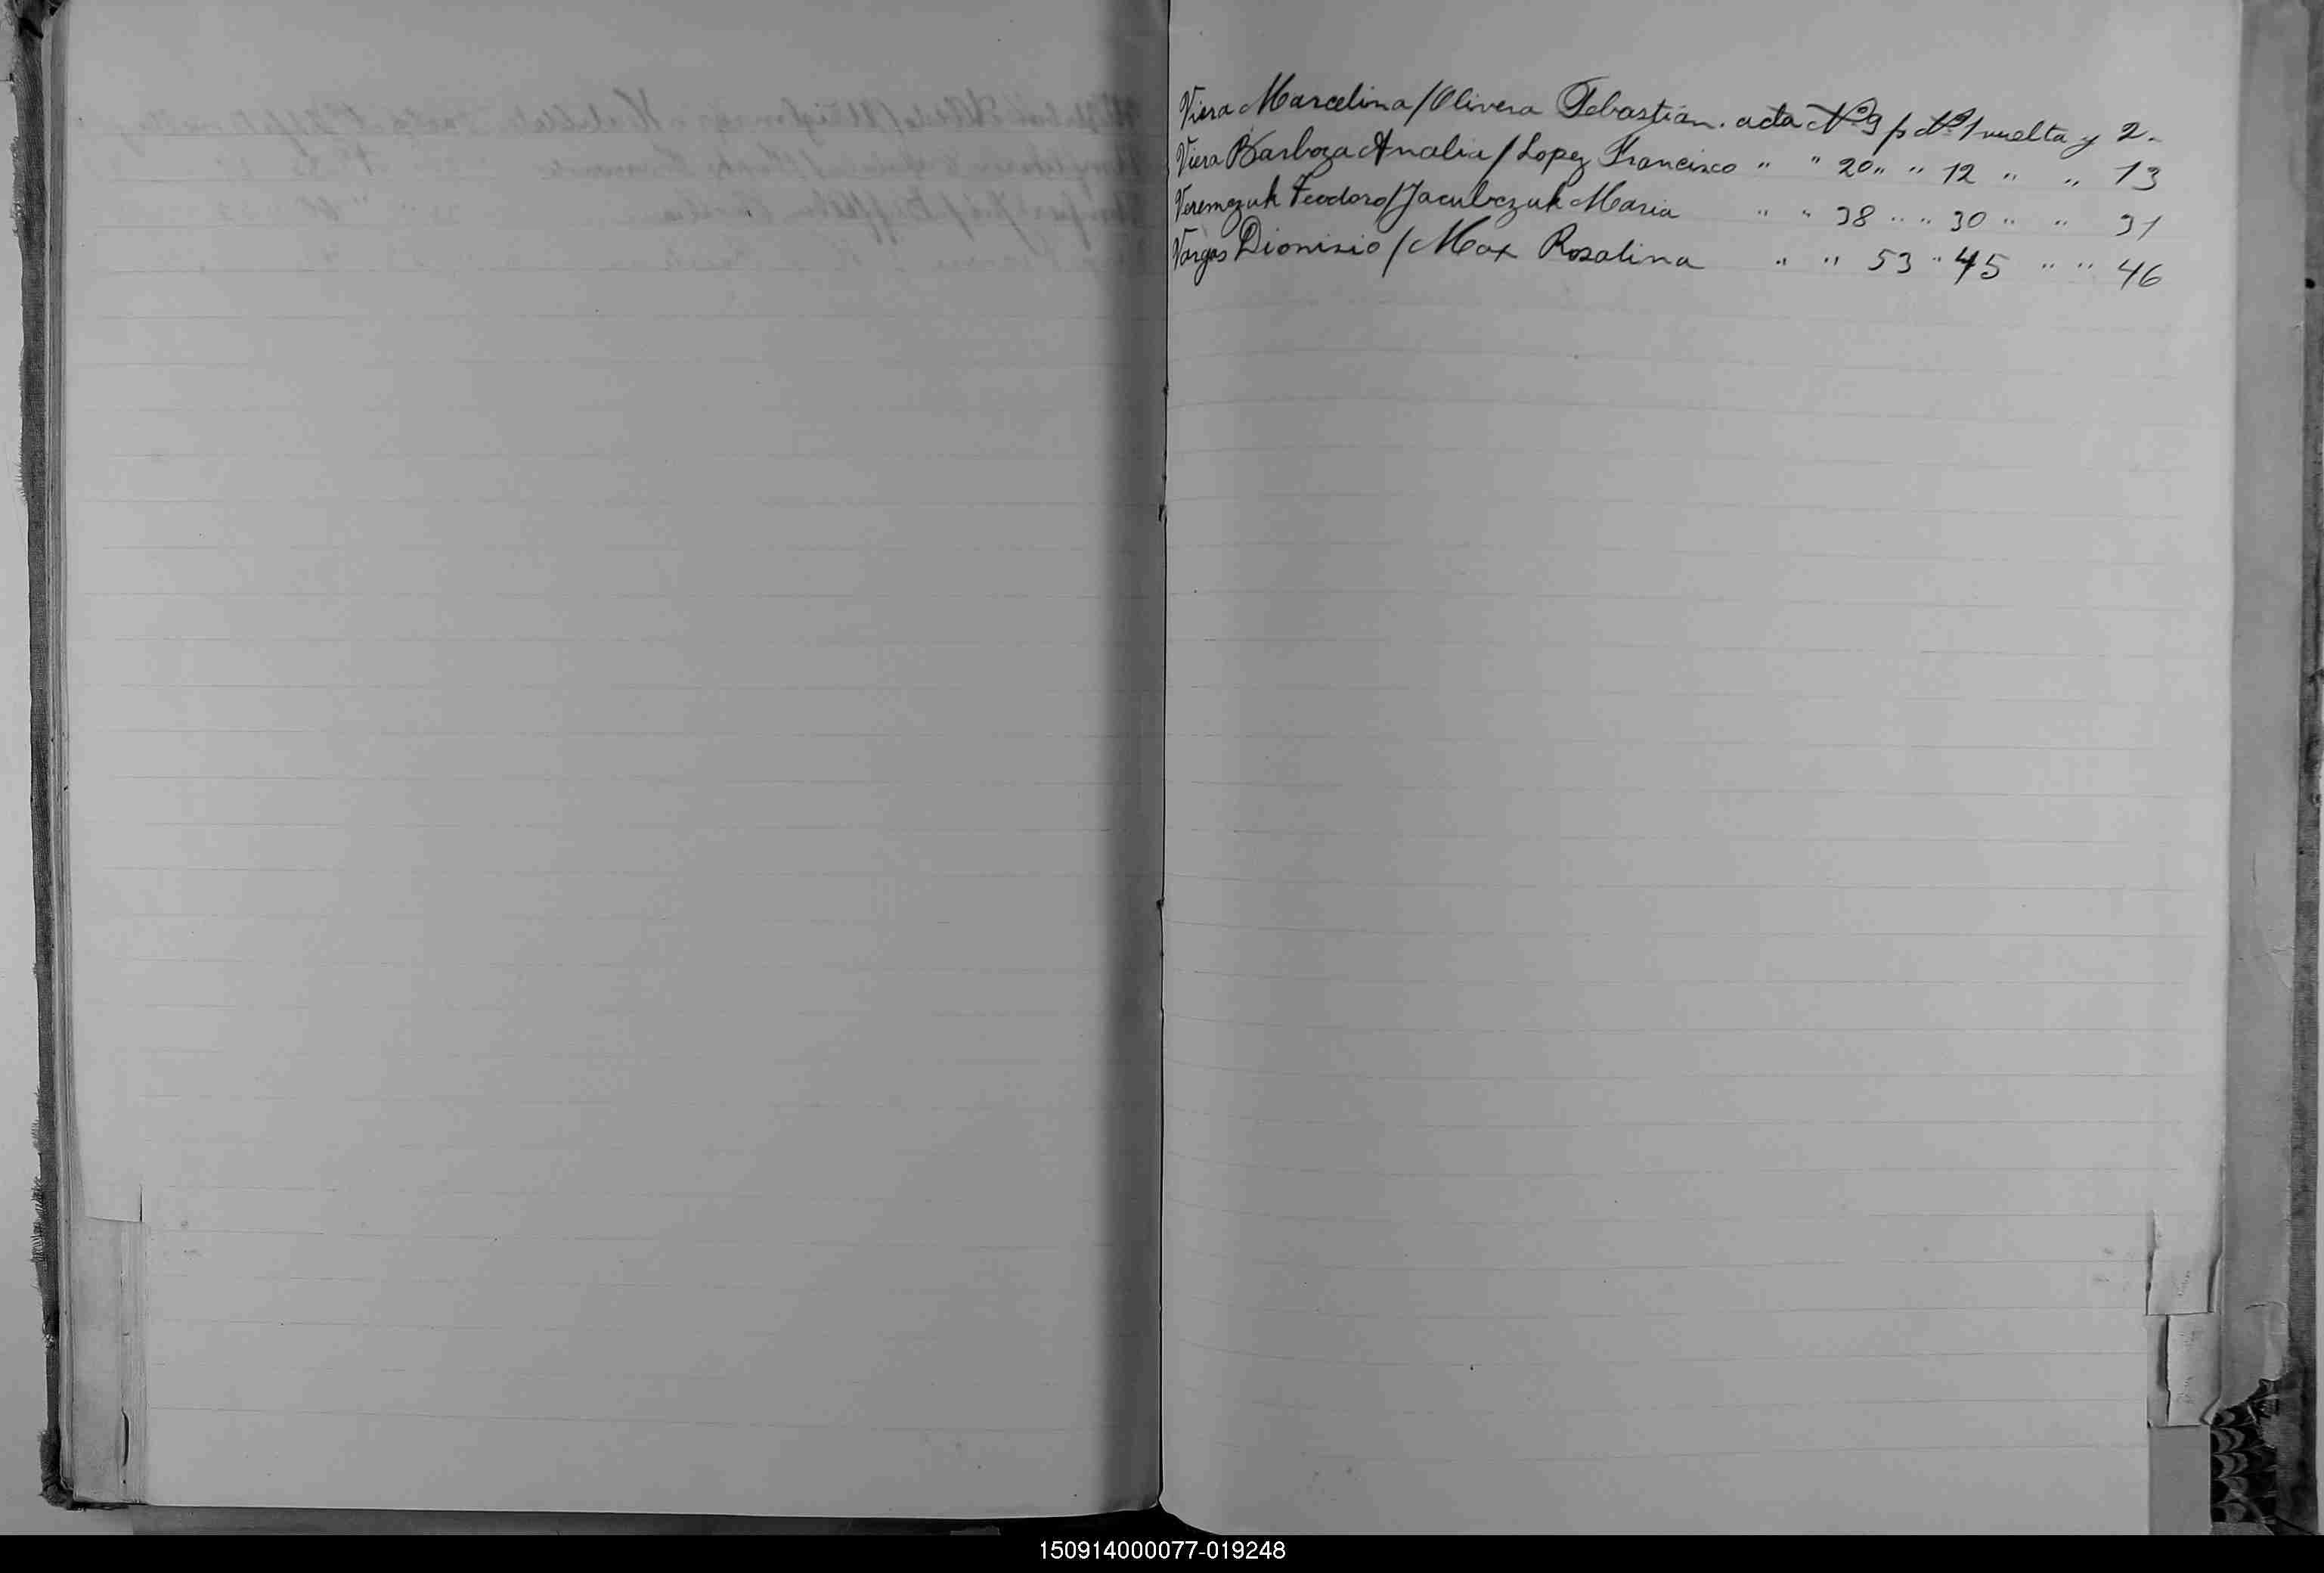 Viera Marcelina/Olivera Sebastián. acta Nº 9 p Nº 1 vuelta y 2.
Viera Barboza Analia/Lopez Francisco " " 20 " " 12 " " 13
Veremczuk Teodoro/Jacubczuk Maria " " 38 " " 30 " " 31
Vargas Dionisio/Max Rosalina " " 53 " 45 " " 46
150914000077-019248